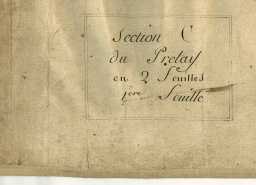 Section C
du Prelay
en 2 Feuilles
1ère Feuille